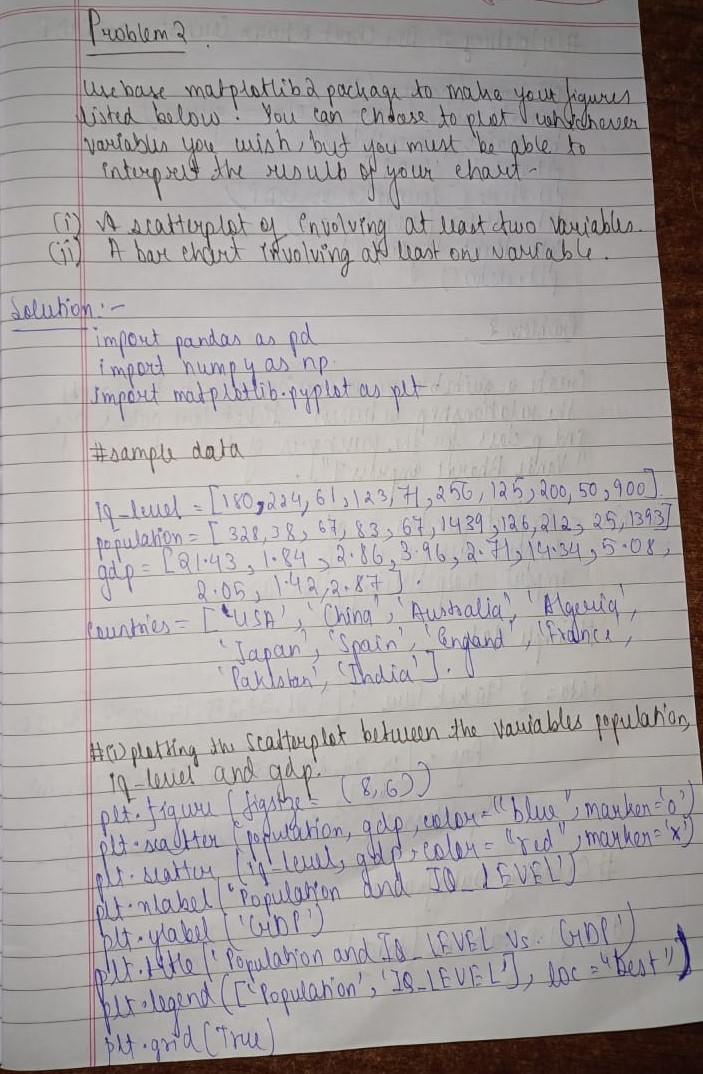 Problem 2.
Use base matplotlib2 package to make your figures
listed below. You can choose to plot whichever
variables you wish, but you must be able to
interpret the result of your chart-
(i) A scatterplot of involving at least two variables.
(ii) A bar chart involving at least one variable.
Solution:-
import pandas as pd
import numpy as np.
import matplotlib.pyplot as plt
#sample data
iq-level = [180,224,61,123,71,256,125,200,50,900]
population = [328,38,67,83,67,1439,126,212,25,1393]
gdp = [21.43, 1.84, 2.86, 3.96, 2.71, 14.34, 5.08,
2.05, 1.42, 2.87].
countries = ['USA', 'China', 'Australia', 'Algeria',
'Japan', 'Spain', 'England', 'France,
'Pakistan', 'India'].
#(i) plotting the scatterplot between the variables population,
iq-level and gdp.
plt.figure (figsize= (8,6))
plt.scatter (population, gdp, color="blue", marker='o')
plt.scatter (iq-level, gdp, color= "red", marker='x')
plt.xlabel ('Population and IQ_LEVEL')
plt.ylabel ('GDP')
plt.title ('Population and IQ_LEVEL Vs. GDP')
plt.legend (['Population', 'IQ_LEVEL'], loc="best")
plt.grid (True)